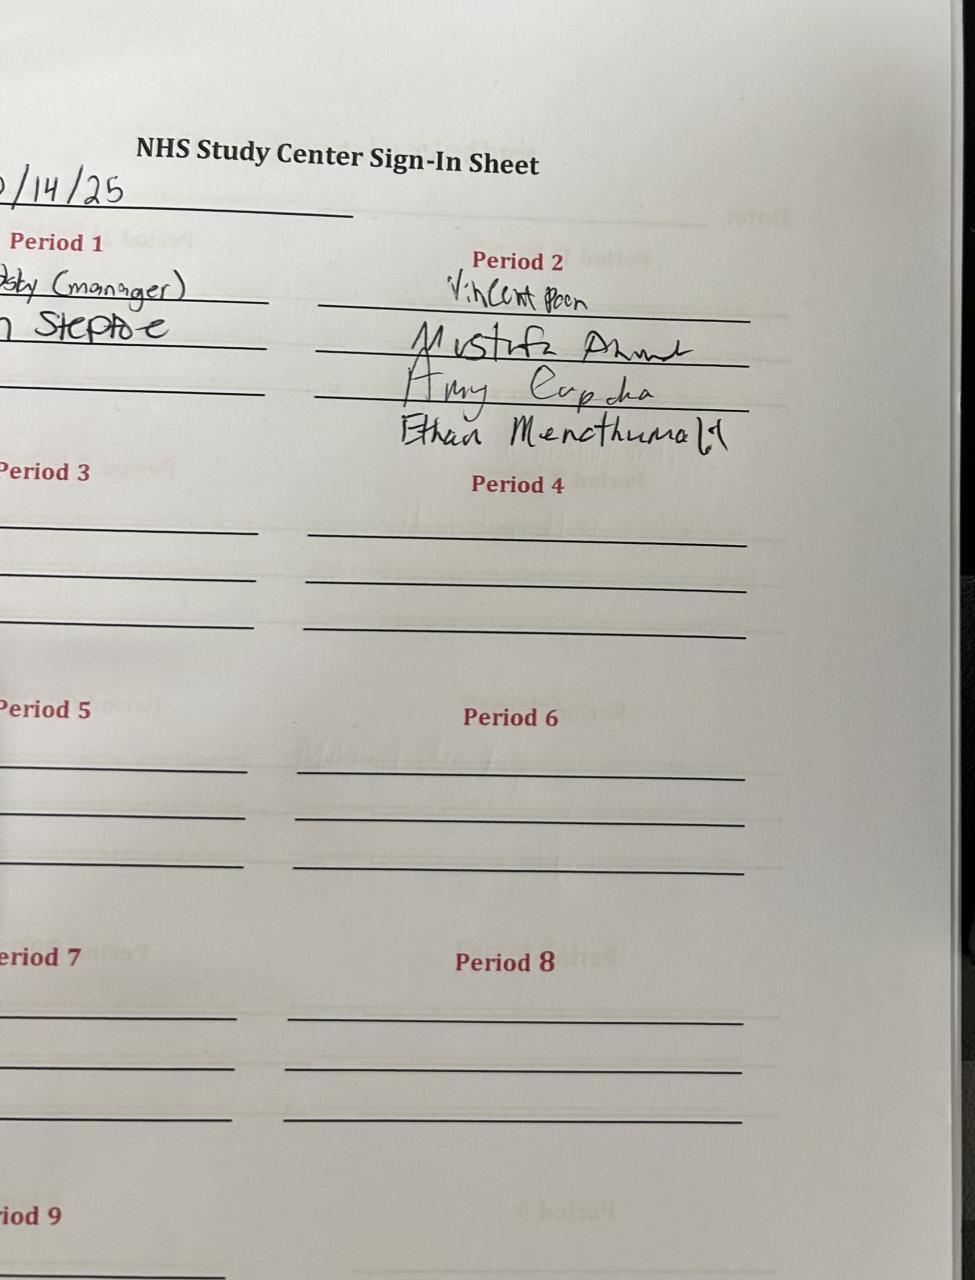 NHS Study Center Sign-In Sheet
/14/25
Period 1
(manager)
Steptoe
Period 2
Vincent Poon
Mustafa Ahmed
Amy
Ethan
Period 3
Period 4
Period 5
Period 6
Period 7
Period 8
Period 9